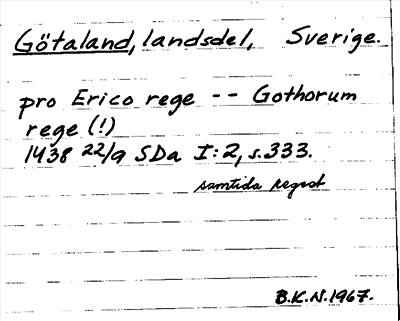 Götaland, landsdel, Sverige.
pro Erico rege -- Gothorum
rege (!)
1438 22/9 SDa I:2, s.333.
samtida regest
B.K.N.1967.